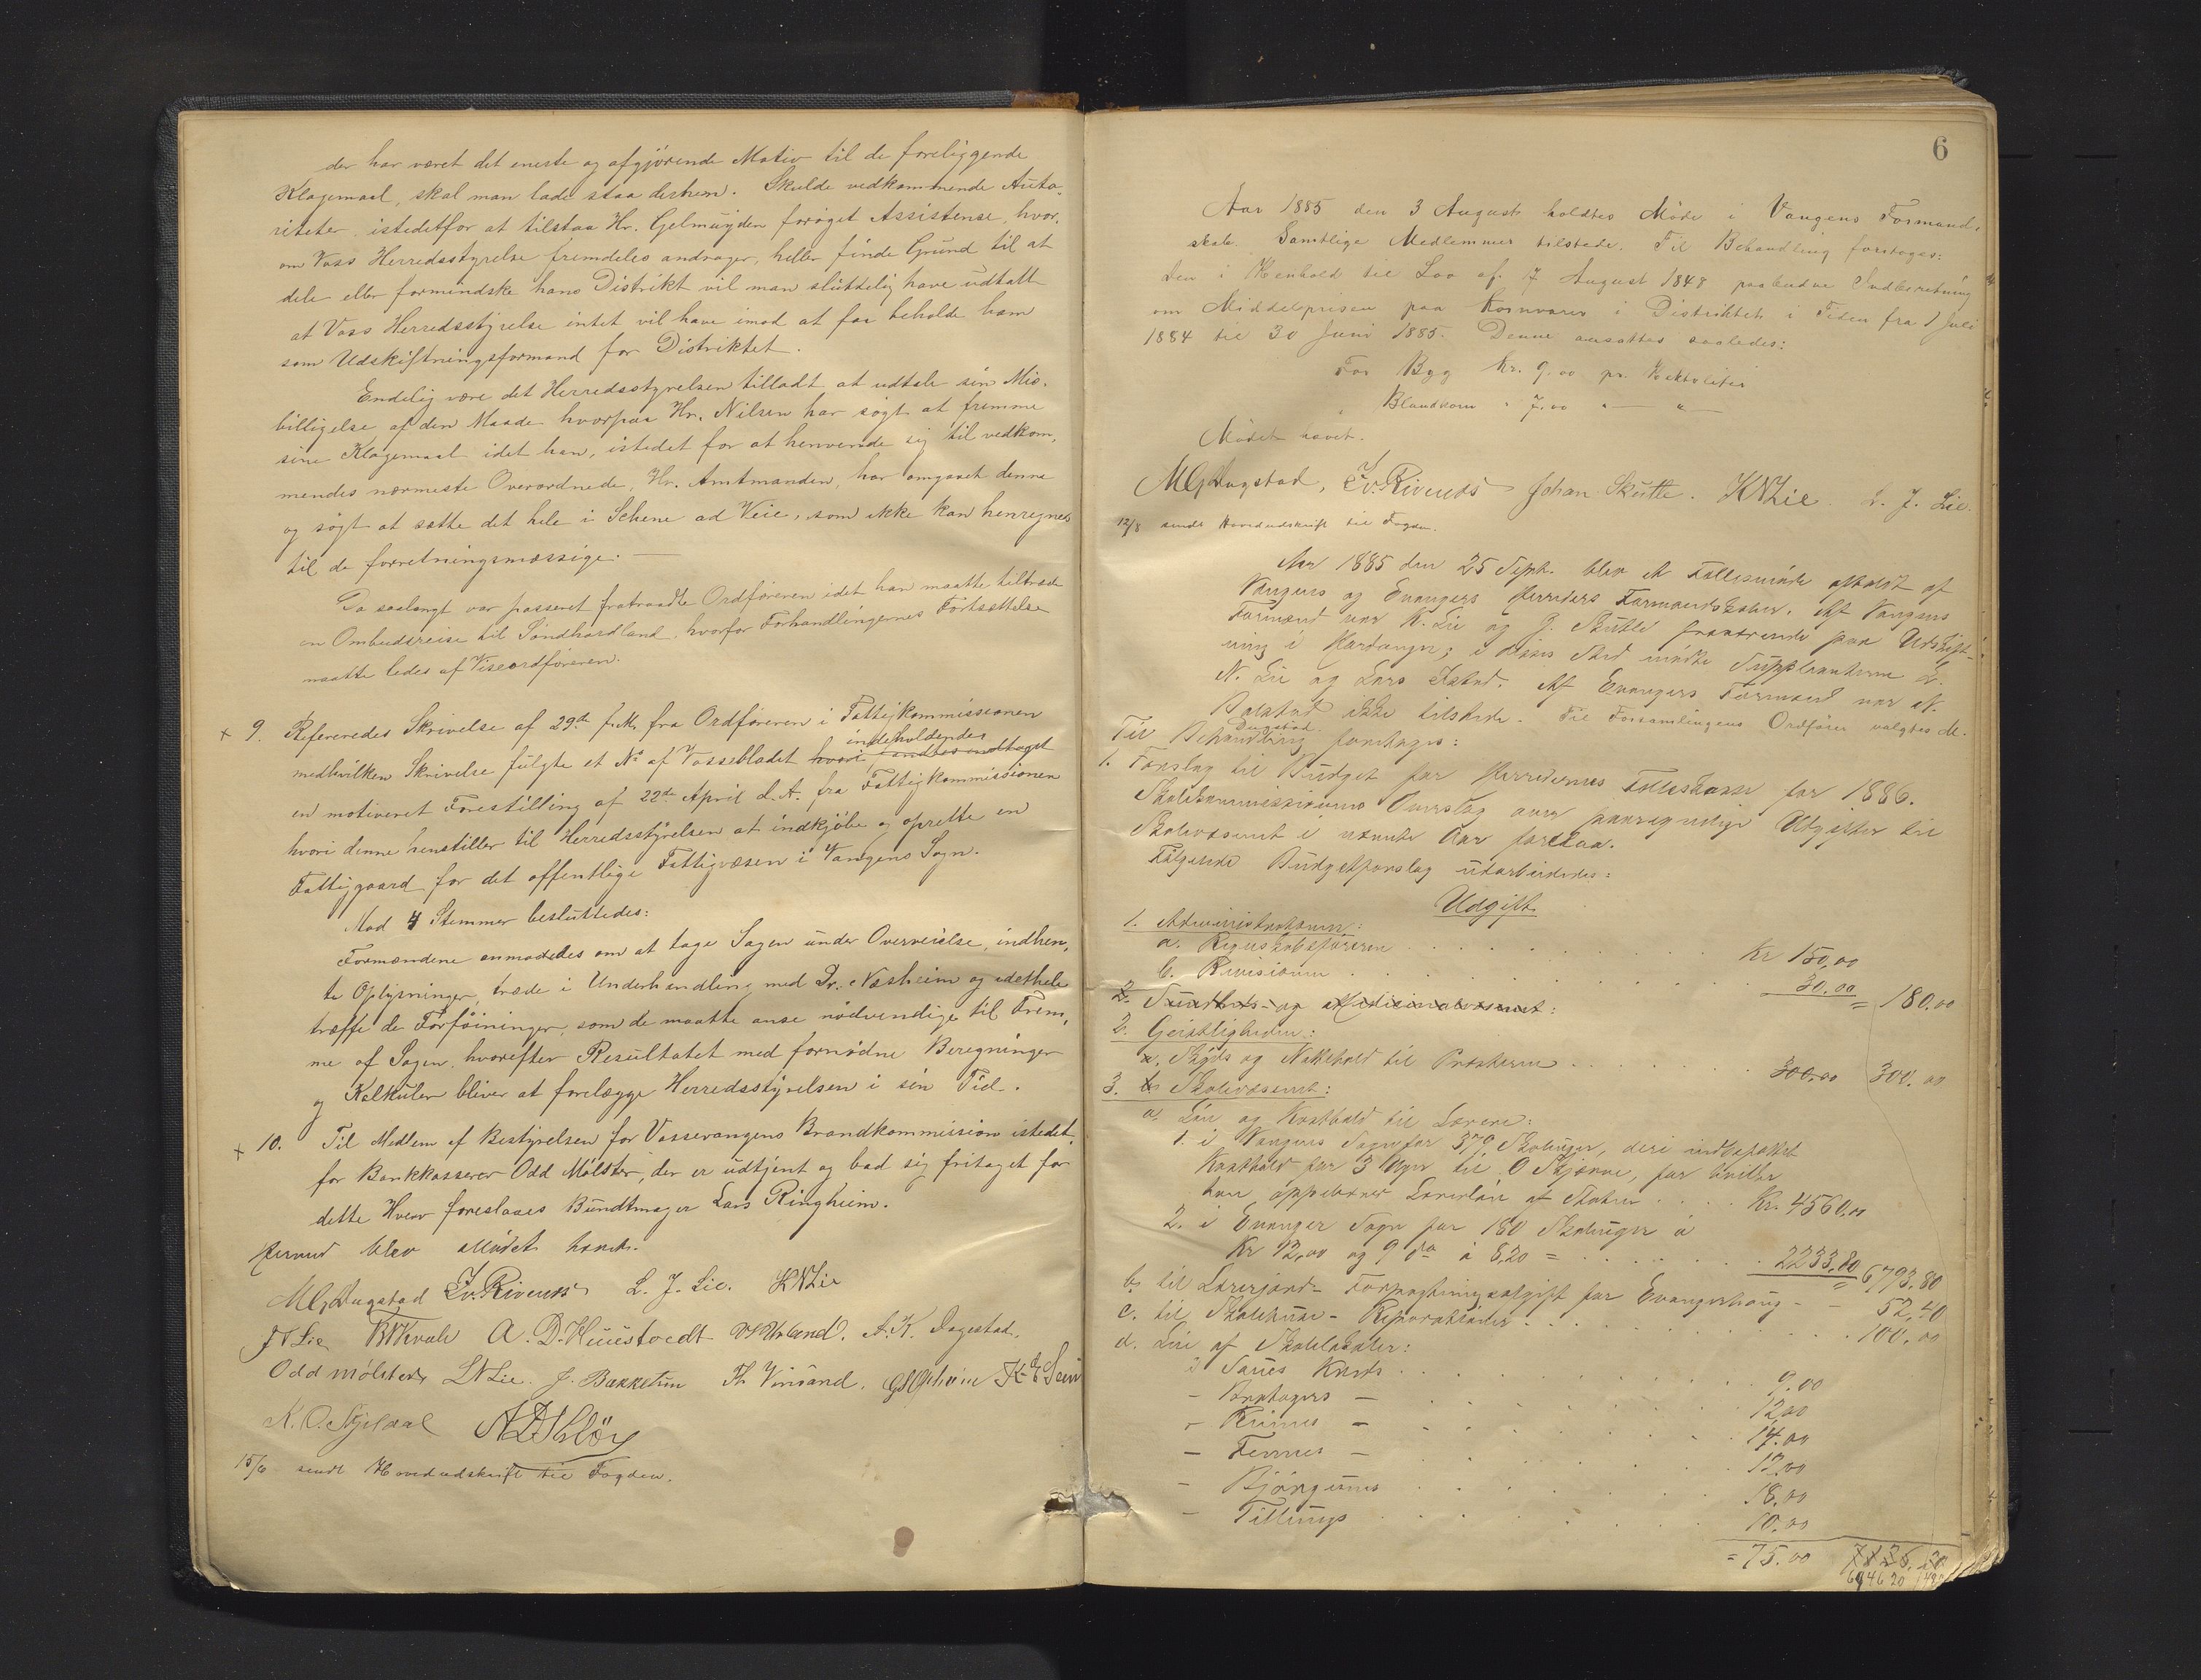 der har været det eneste og afgjörende Motiv til de foreliggende
Klagemaal, skal man lade staa derhen. Skulde vedkommende Auto-
riteter, istedetfor at tilstaa Hr. Gelmuyden foröget Assistense, hvor-
om Voss Herredsstyrelse fremdeles andrager, heller finde Grund til at
dele eller formindske hans Distrikt vil man sluttelig have udtalt
at Voss Herredsstyrelse intet vil have imod at faa beholde ham
som Udskiftningsformand for Distriktet.
Endelig være det Herredsstyrelsen tilladt at udtale sin Mis-
billigelse af den Maade hvorpaa Hr. Nilsen har sögt at fremme
sine Klagemaal idet han, istedet for at henvende sig til vedkom-
mendes nærmeste Overordnede, Hr. Amtmanden, har omgaaet denne
og sögt at sætte det hele i Schene ad Veie, som ikke kan henregnes
til de forretningsmæssige. —
Da saalangt var passeret fratraadte Ordföreren idet han maatte tiltræde
en Ombudsreise til Söndhordland, hvorfor Forhandlingernes Fortsættelse
maatte ledes af Viseordföreren.
+ 9. Refereredes Skrivelse af 29de f. M. fra Ordföreren i Fattigkommissionen
indeholdendes
medhvilken Skrivelse fulgte et No af Vossebladet hvori fandtes indtaget
en motiveret Forestilling af 22de April d. A. fra Fattigkommissionen
hvori denne henstiller til Herredsstyrelsen at indkjöbe og oprette en
Fattiggaard for det offentlige Fattigvæsen i Vangens Sogn.
Mod 4 Stemmer besluttedes:
Formændene anmodedes om at tage Sagen under Overveielse, indhen-
te Oplysninger, træde i Underhandling med Dr. Næsheim og idethele
træffe de Forföininger, som de maatte anse nödvendige til Frem-
me af Sagen, hvorefter Resultatet med fornödne Beregninger
og Kalkuler bliver at forelægge Herredsstyrelsen i sin Tid.
+ 10. Til Medlem af Bestyrelsen for Vossevangens Brandkommission istedet-
for Bankkasserer Odd Mölster, der er udtjent og bad sig fritaget for
dette Hverv foreslaaes Bundtmager Lars Ringheim.
Hermed blev Mödet hævet.
MGDugstad Iv. Rivenæs L. J. Lie. KNLie
A. K. Dagestad.
Odd Mölster LNLie. J. Bakketun Th Vinsand.
15/6 sendt Hovedudskrift til Fogden.
6
Aar 1885 den 3 August holdtes Möde i Vangens Formand-
skab. Samtlige Medlemmer tilstede. Til Behandling foretoges:
Den i Henhold til Lov af 17 August 1848 paabudne Indberetning
om Middelprisen paa Kornvarer i Distriktet i Tiden fra 1 Juli
1884 til 30 Juni 1885. Denne ansattes saaledes:
For Byg Kr. 9.00 pr. Hektoliter
" Blandkorn " 7.00 " — " —
Mödet hævet.
MGDugstad, Iv. Rivenæs Johan Skutle. KNLie. L. J. Lie.
12/8 sendt Hovedudskrift til Fogden.
Aar 1885 den 25 Septb. blev et Fællesmöde afholdt af
Vangens og Evangers Herreders Formandskaber. Af Vangens
Formænd var K. Lie og J. Skutle fraværende paa Udskift-
ning i Hardanger; i disses Sted mödte Supplanterne L.
N. Lie og Lars . Af Evangers Formænd var N.
ikke tilstede. Til Forsamlingens Ordförer valgtes M.
Dugstad.
Til Behandling foretoges:
1. Forslag til Budget for Herredernes Fælleskasse for 1886.
Skolekommissionens Overslag over paaregnelige Udgifter til
Skolevæsenet i nævnte Aar forelaa.
Fölgende Budgetforslag udarbeidedes:
Udgift
1. Administrationen:
a. Regnskabsföreren . . . Kr 150,00
b. Revisionen . . . 30.00 = 180.00
2. Sundheds- og Medicinalvæsenet:
2. Geistligheden:
a. Skyds og Nattehold til Præsterne . . . 300,00 300.00
3. b Skolevæsenet:
a. Lön og Kosthold til Lærere:
1. i Vangens Sogn for 379 Skoleuger, deri indbefattet
Kosthold for 3 Uger til O Skjerve, for hvilke
han oppebærer Lærerlön af Staten . . . Kr. 4560,00
2. i Evanger Sogn for 180 Skoleuger à
Kr 12,00 og 9 do à 8,20 = . . . 2233,80 = 6793,80
b. til Lærerjord- Forpagtningsafgift for Evangerhaug - - 52,40
c. til Skolehuse - Reparationer . . . 100.00
d. Leie af Skolelokaler:
i Saues Kreds . . . 9.00
- - . . . 12.00
- Rjunes - . . . 14.00
- Fennes - . . . 12.00
- Björgums . . . 18.00
- Tillungs . . . 10.00
= 75.00